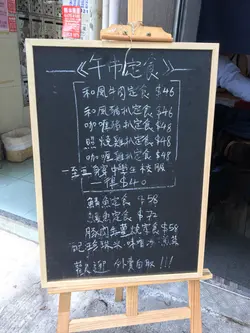 《午市定食》
和風牛肉定食 $46
和風豬扒定食 $46
咖喱豬扒定食 $48
照燒雞扒定食 $48
咖喱雞扒定食 $48
一至五 穿中學生校服
一律 $40
鯖魚定食 $58
鰻魚定食 $72
豚肉生薑燒定食 $58
配珍珠米 味噌湯
歡迎 外賣自取!!!